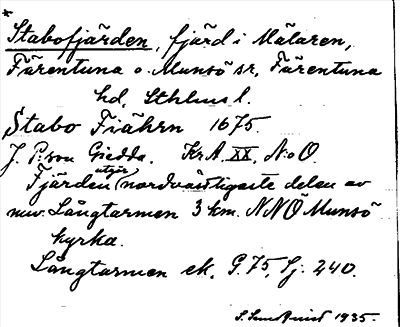 *
Stabofjärden, fjärd i Mälaren,
Färentuna o. Munsö sr, Färentuna
hd, Sthlms l.
Stabo Fiährn 1675.
J. P:son Giedda. KrA. XX, N:o O.
utgör
Fjärden nordvästligaste delen av
nuv. Långtarmen 3 km. NNO Munsö
kyrka.
Långtarmen ek. G. 75, Sj. 240.
1935.